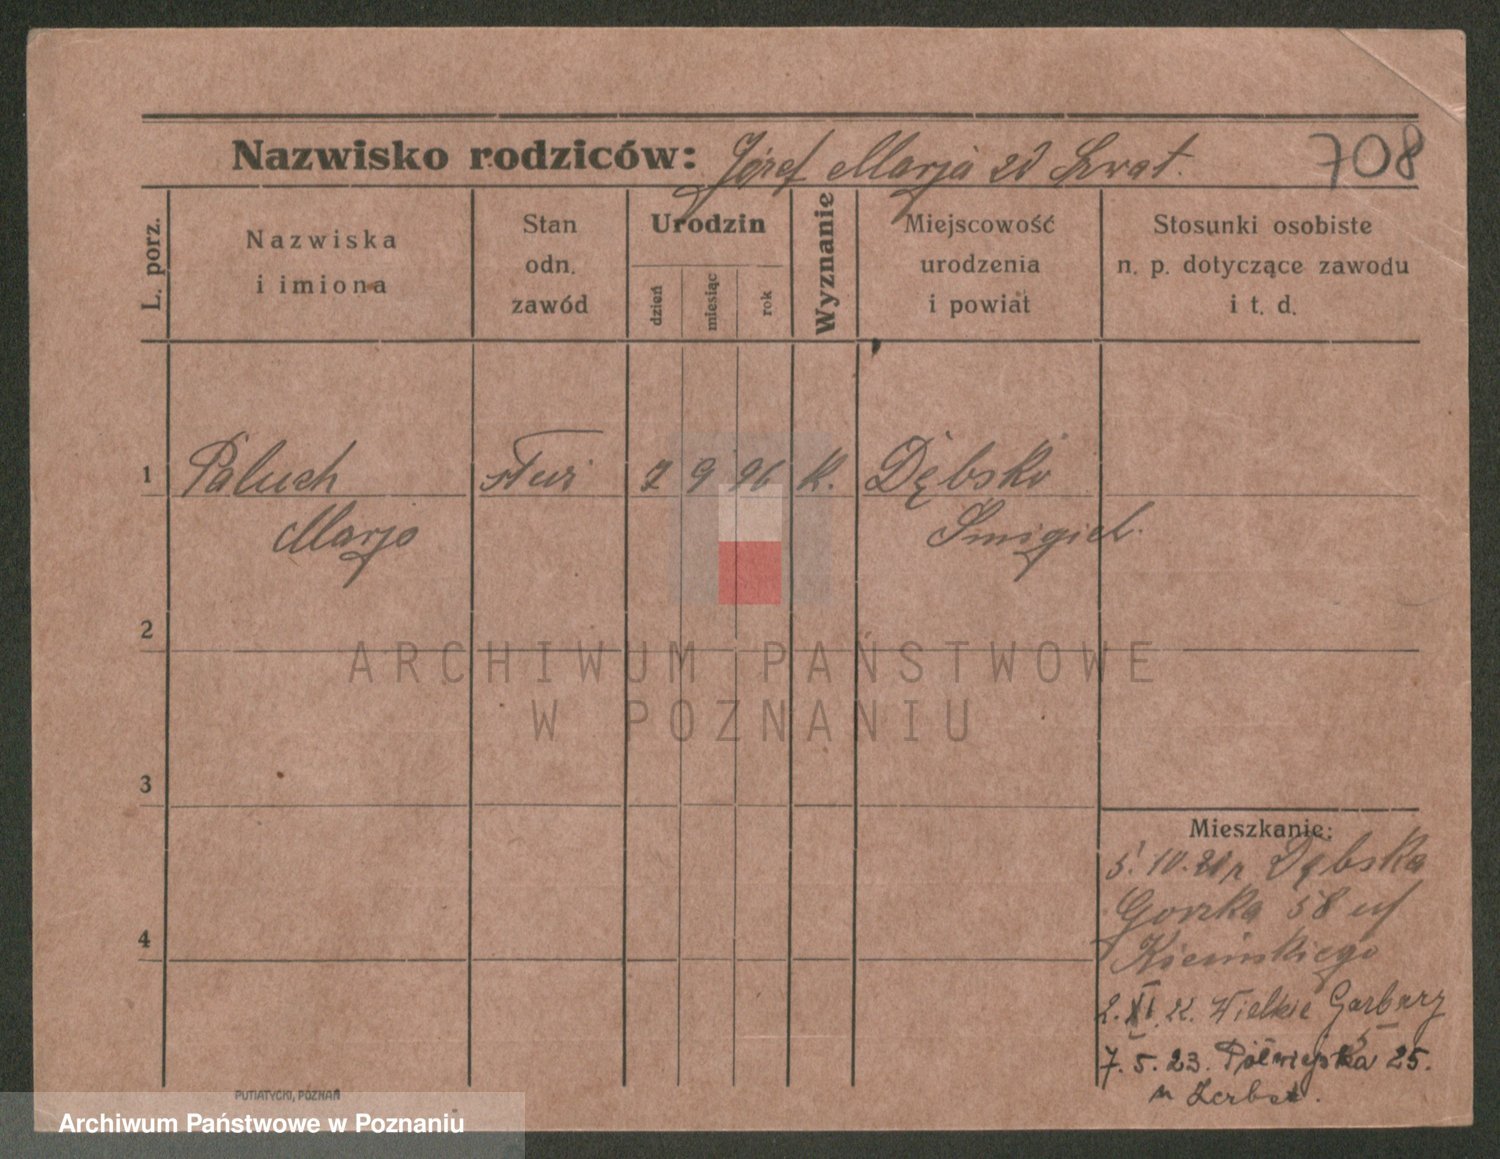 Nazwisko rodziców: Józef Marja zd Szrat. 708
L. porz.
Nazwiska
i imiona
Stan
odn.
zawód
Urodzin
dzień
miesiąc
rok
Wyznanie
Miejscowość
urodzenia
i powiat
Stosunki osobiste
n. p. dotyczące zawodu
i t. d.
1 Paluch 9 96 K. Dębsko
Marja Śmigiel.
2
3
4
Mieszkanie:
5. 10. Dębska
58
2. XI. 22. Wielkie Garbary
5
7. 5. 23. Półwiejska 25.
u Zerbst.
PUTIATYCKI, POZNAŃ
ARCHIWUM PAŃSTWOWE
W POZNANIU
Archiwum Państwowe w Poznaniu